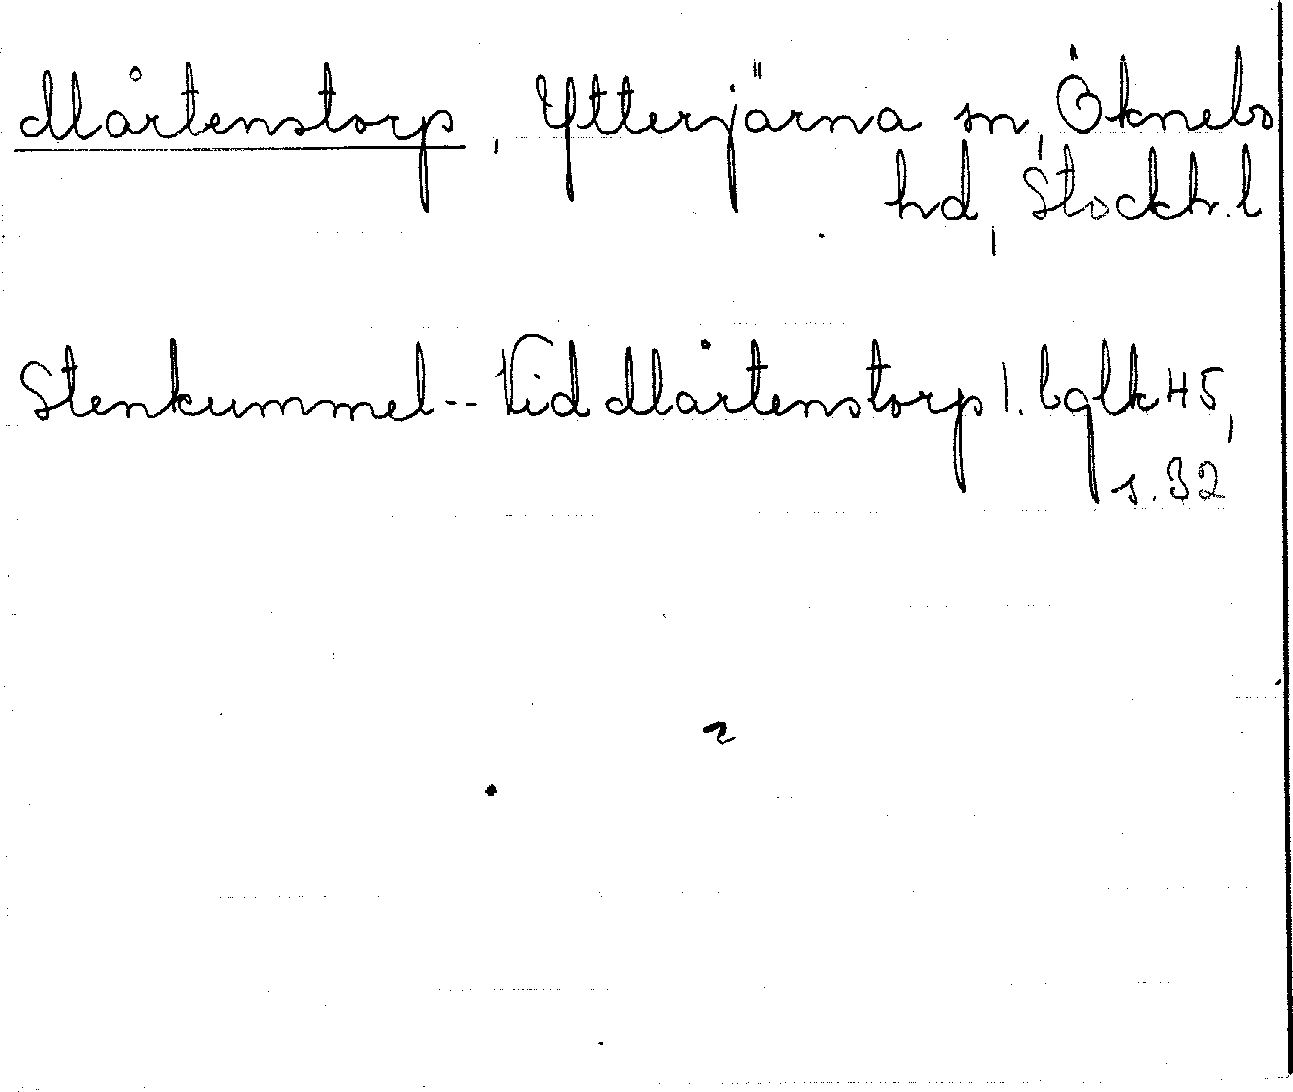 Mårtenstorp, Ytterjärna sn, Öknebo
hd, Stockh. l
Stenkummel -- Vid Mårtenstorp l. bglk 45,
s. 32